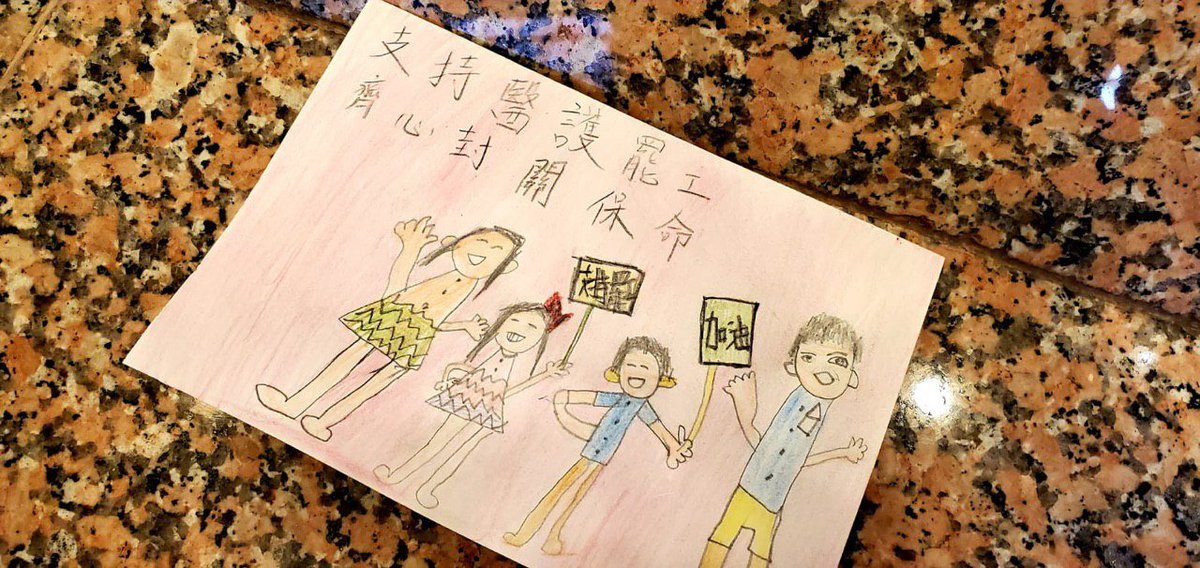 支持醫護罷工
齊心封關保命
支持罷工
加油